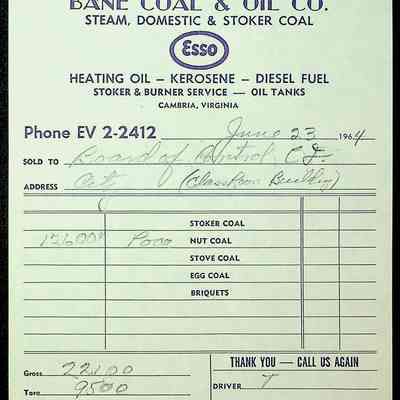 BANE COAL & OIL CO.
STEAM, DOMESTIC & STOKER COAL
Esso
HEATING OIL — KEROSENE — DIESEL FUEL
STOKER & BURNER SERVICE — OIL TANKS
CAMBRIA, VIRGINIA
Phone EV 2-2412 June 23 1964
SOLD TO Board of Control, C.I.
ADDRESS City (Classroom Building)
STOKER COAL
12600# Poco NUT COAL
STOVE COAL
EGG COAL
BRIQUETS
Gross 22100
Tare 9500
THANK YOU — CALL US AGAIN
DRIVER T